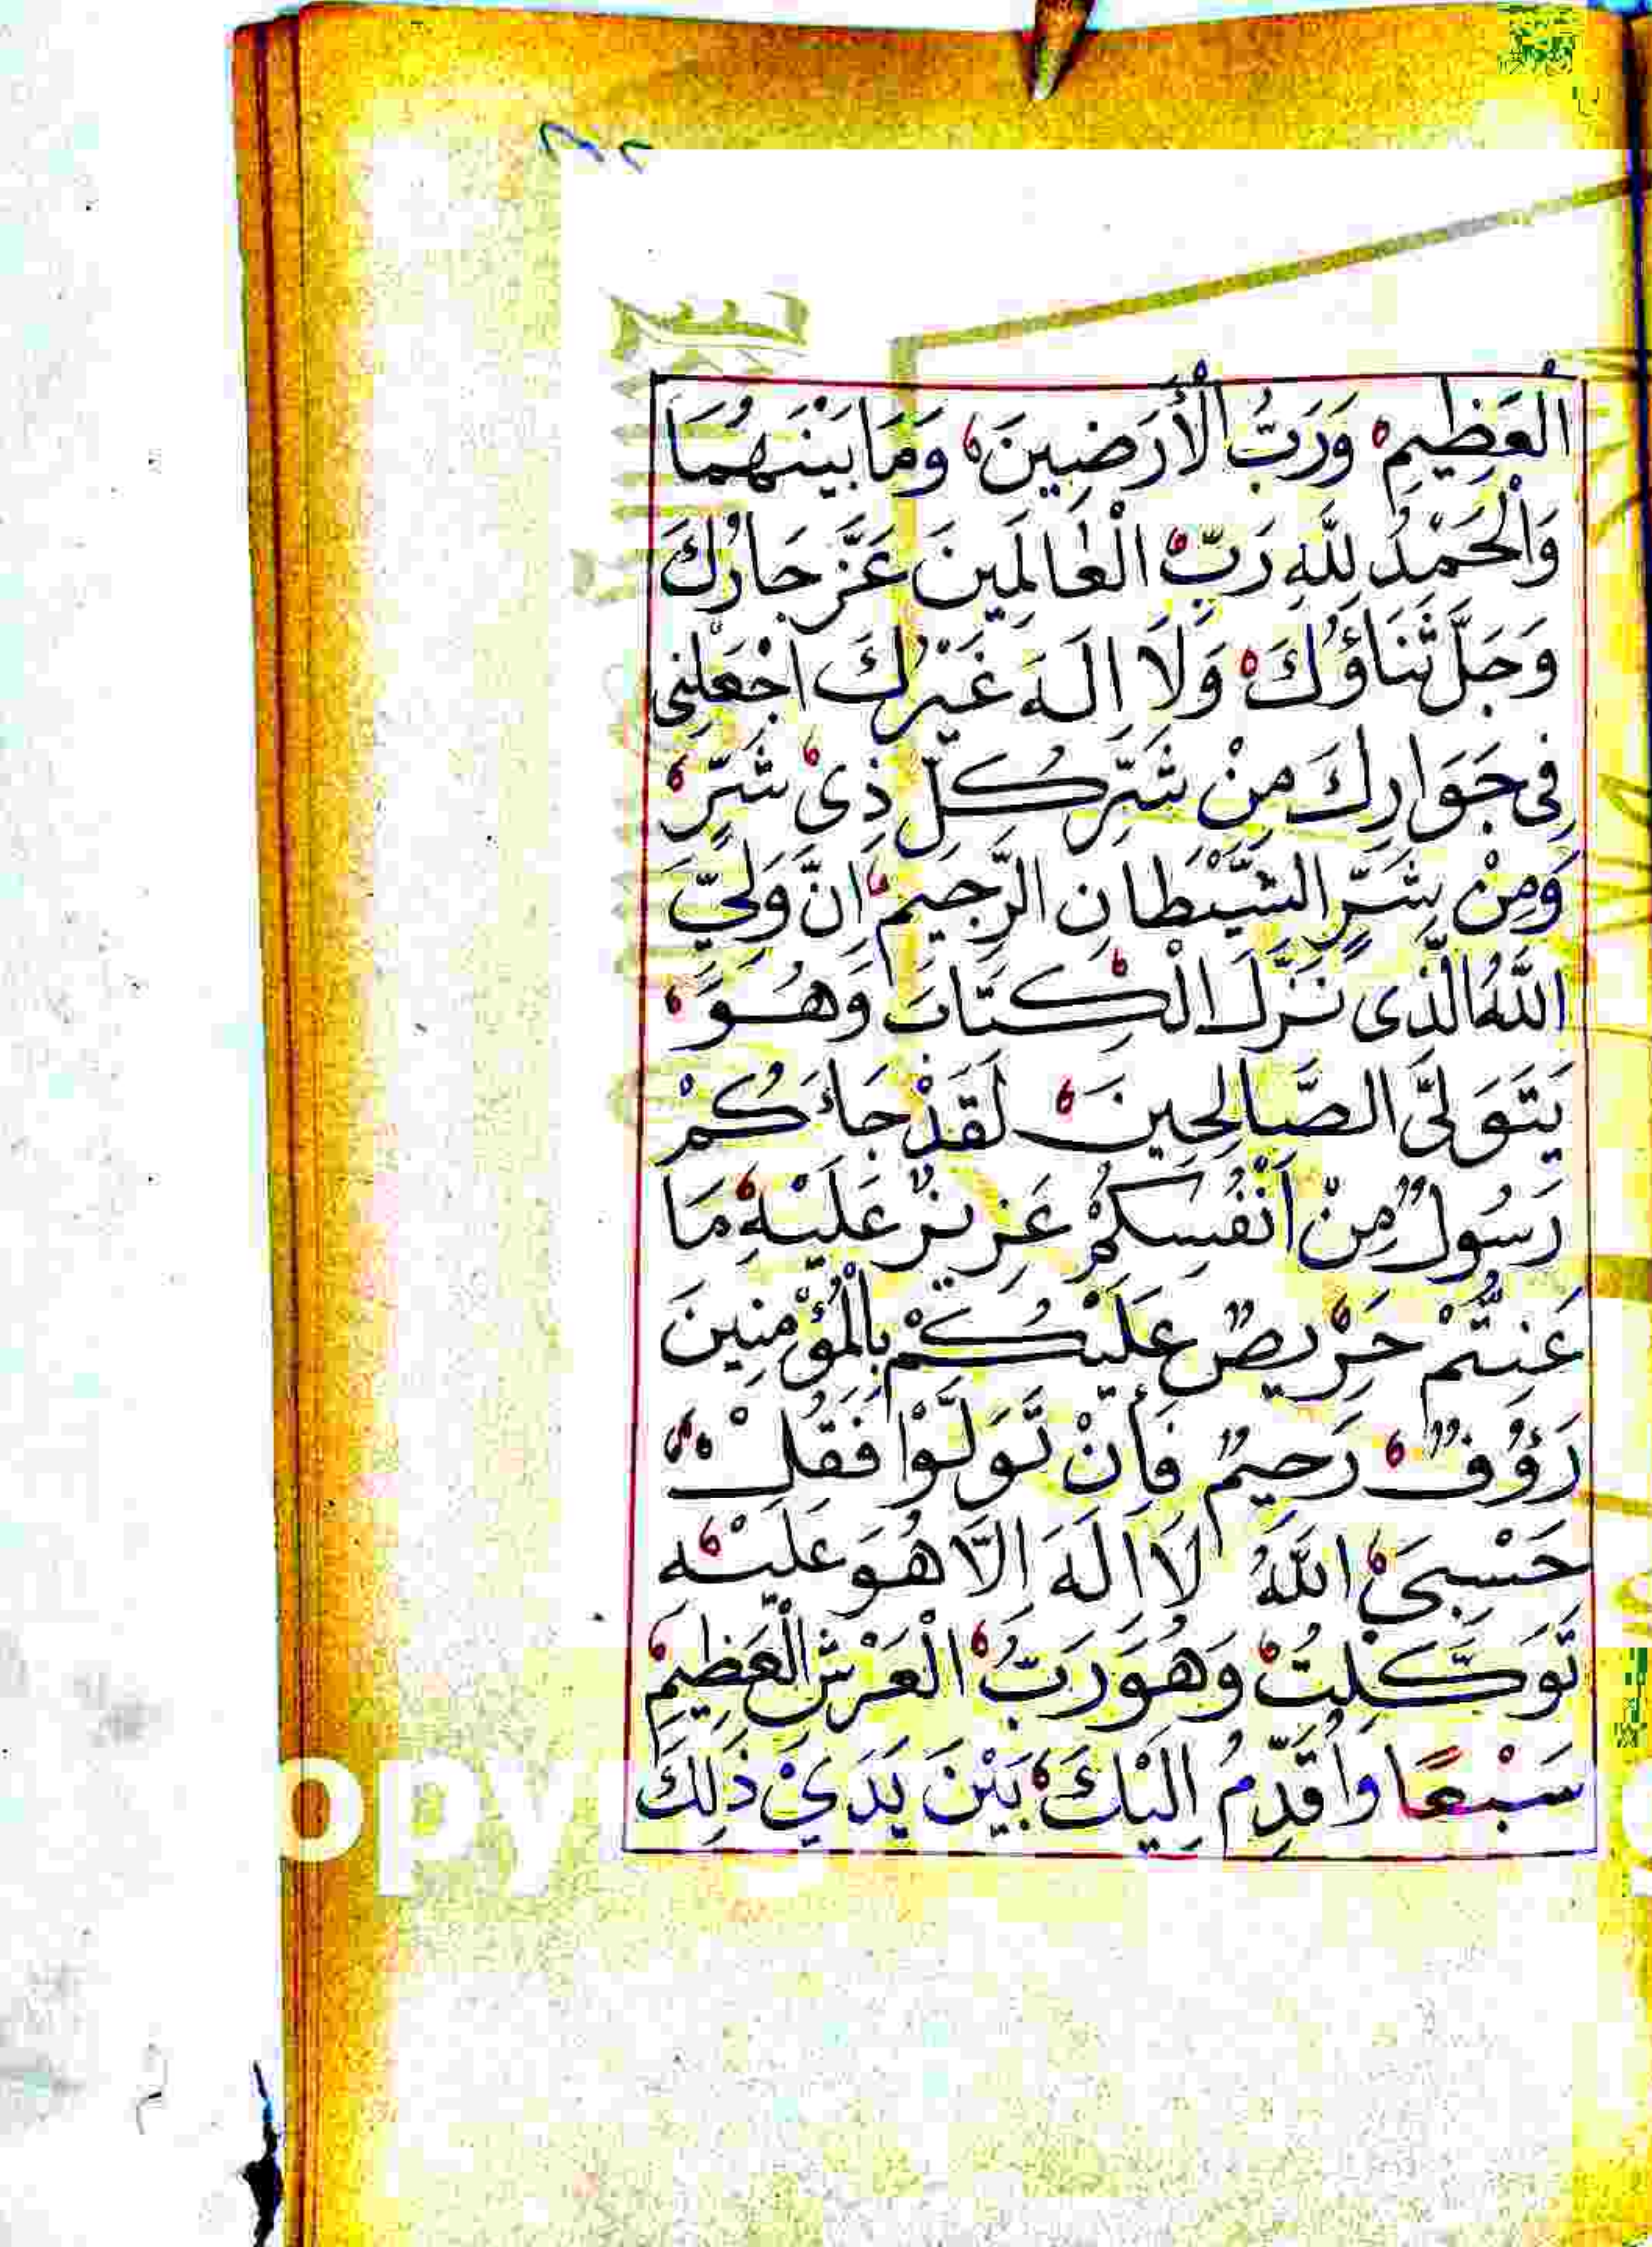 الْعَظِيمِ وَرَبُّ الْأَرَضِينَ وَمَا بَيْنَهُمَا
وَالْحَمْدُ لِلَّهِ رَبِّ الْعَالَمِينَ عَزَّ جَارُكَ
وَجَلَّ ثَنَاؤُكَ وَلَا اِلَهَ غَيْرُكَ اجْعَلْنِى
فِى جَوَارِكَ مِنْ شَرِّ كُلِّ ذِىْ شَرٍّ
وَمِنْ شَرِّ الشَّيْطَانِ الرَّجِيمِ اِنَّ وَلِيِّيَ
اللَّهُ الَّذِى نَزَّلَ الْكِتَابَ وَهُوَ
يَتَوَلَّى الصَّالِحِينَ لَقَدْ جَاءَكُمْ
رَسُولٌ مِنْ اَنْفُسِكُمْ عَزِيزٌ عَلَيْهِ مَا
عَنِتُّمْ حَرِيصٌ عَلَيْكُمْ بِالْمُؤْمِنِينَ
رَؤُوفٌ رَحِيمٌ فَأِنْ تَوَلَّوْا فَقُلْ
حَسْبِىَ اللَّهُ لَا اِلَهَ اِلَّا هُوَ عَلَيْهِ
تَوَكَّلْتُ وَهُوَ رَبُّ الْعَرْشِ الْعَظِيمِ
سَبْعًا وَاُقَدِّمُ اِلَيْكَ بَيْنَ يَدَيْ ذَلِكَ
opy